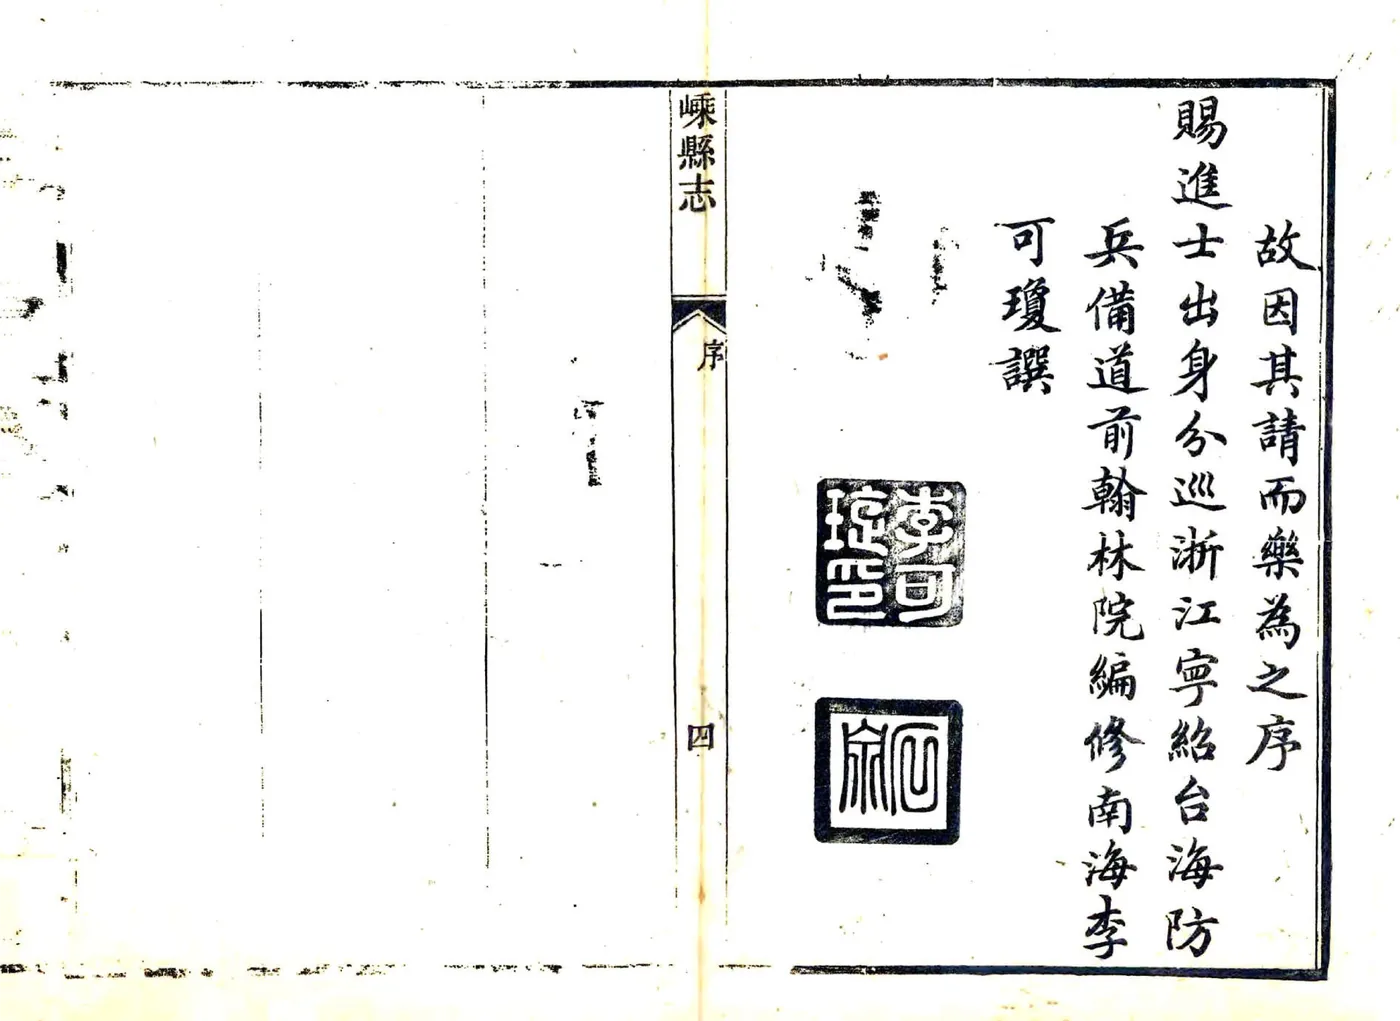 故因其請而樂為之序
賜進士出身分巡浙江寧紹台海防
兵備道前翰林院編修南海李
可瓊譔
李可
琁印
嵊縣志
序
四